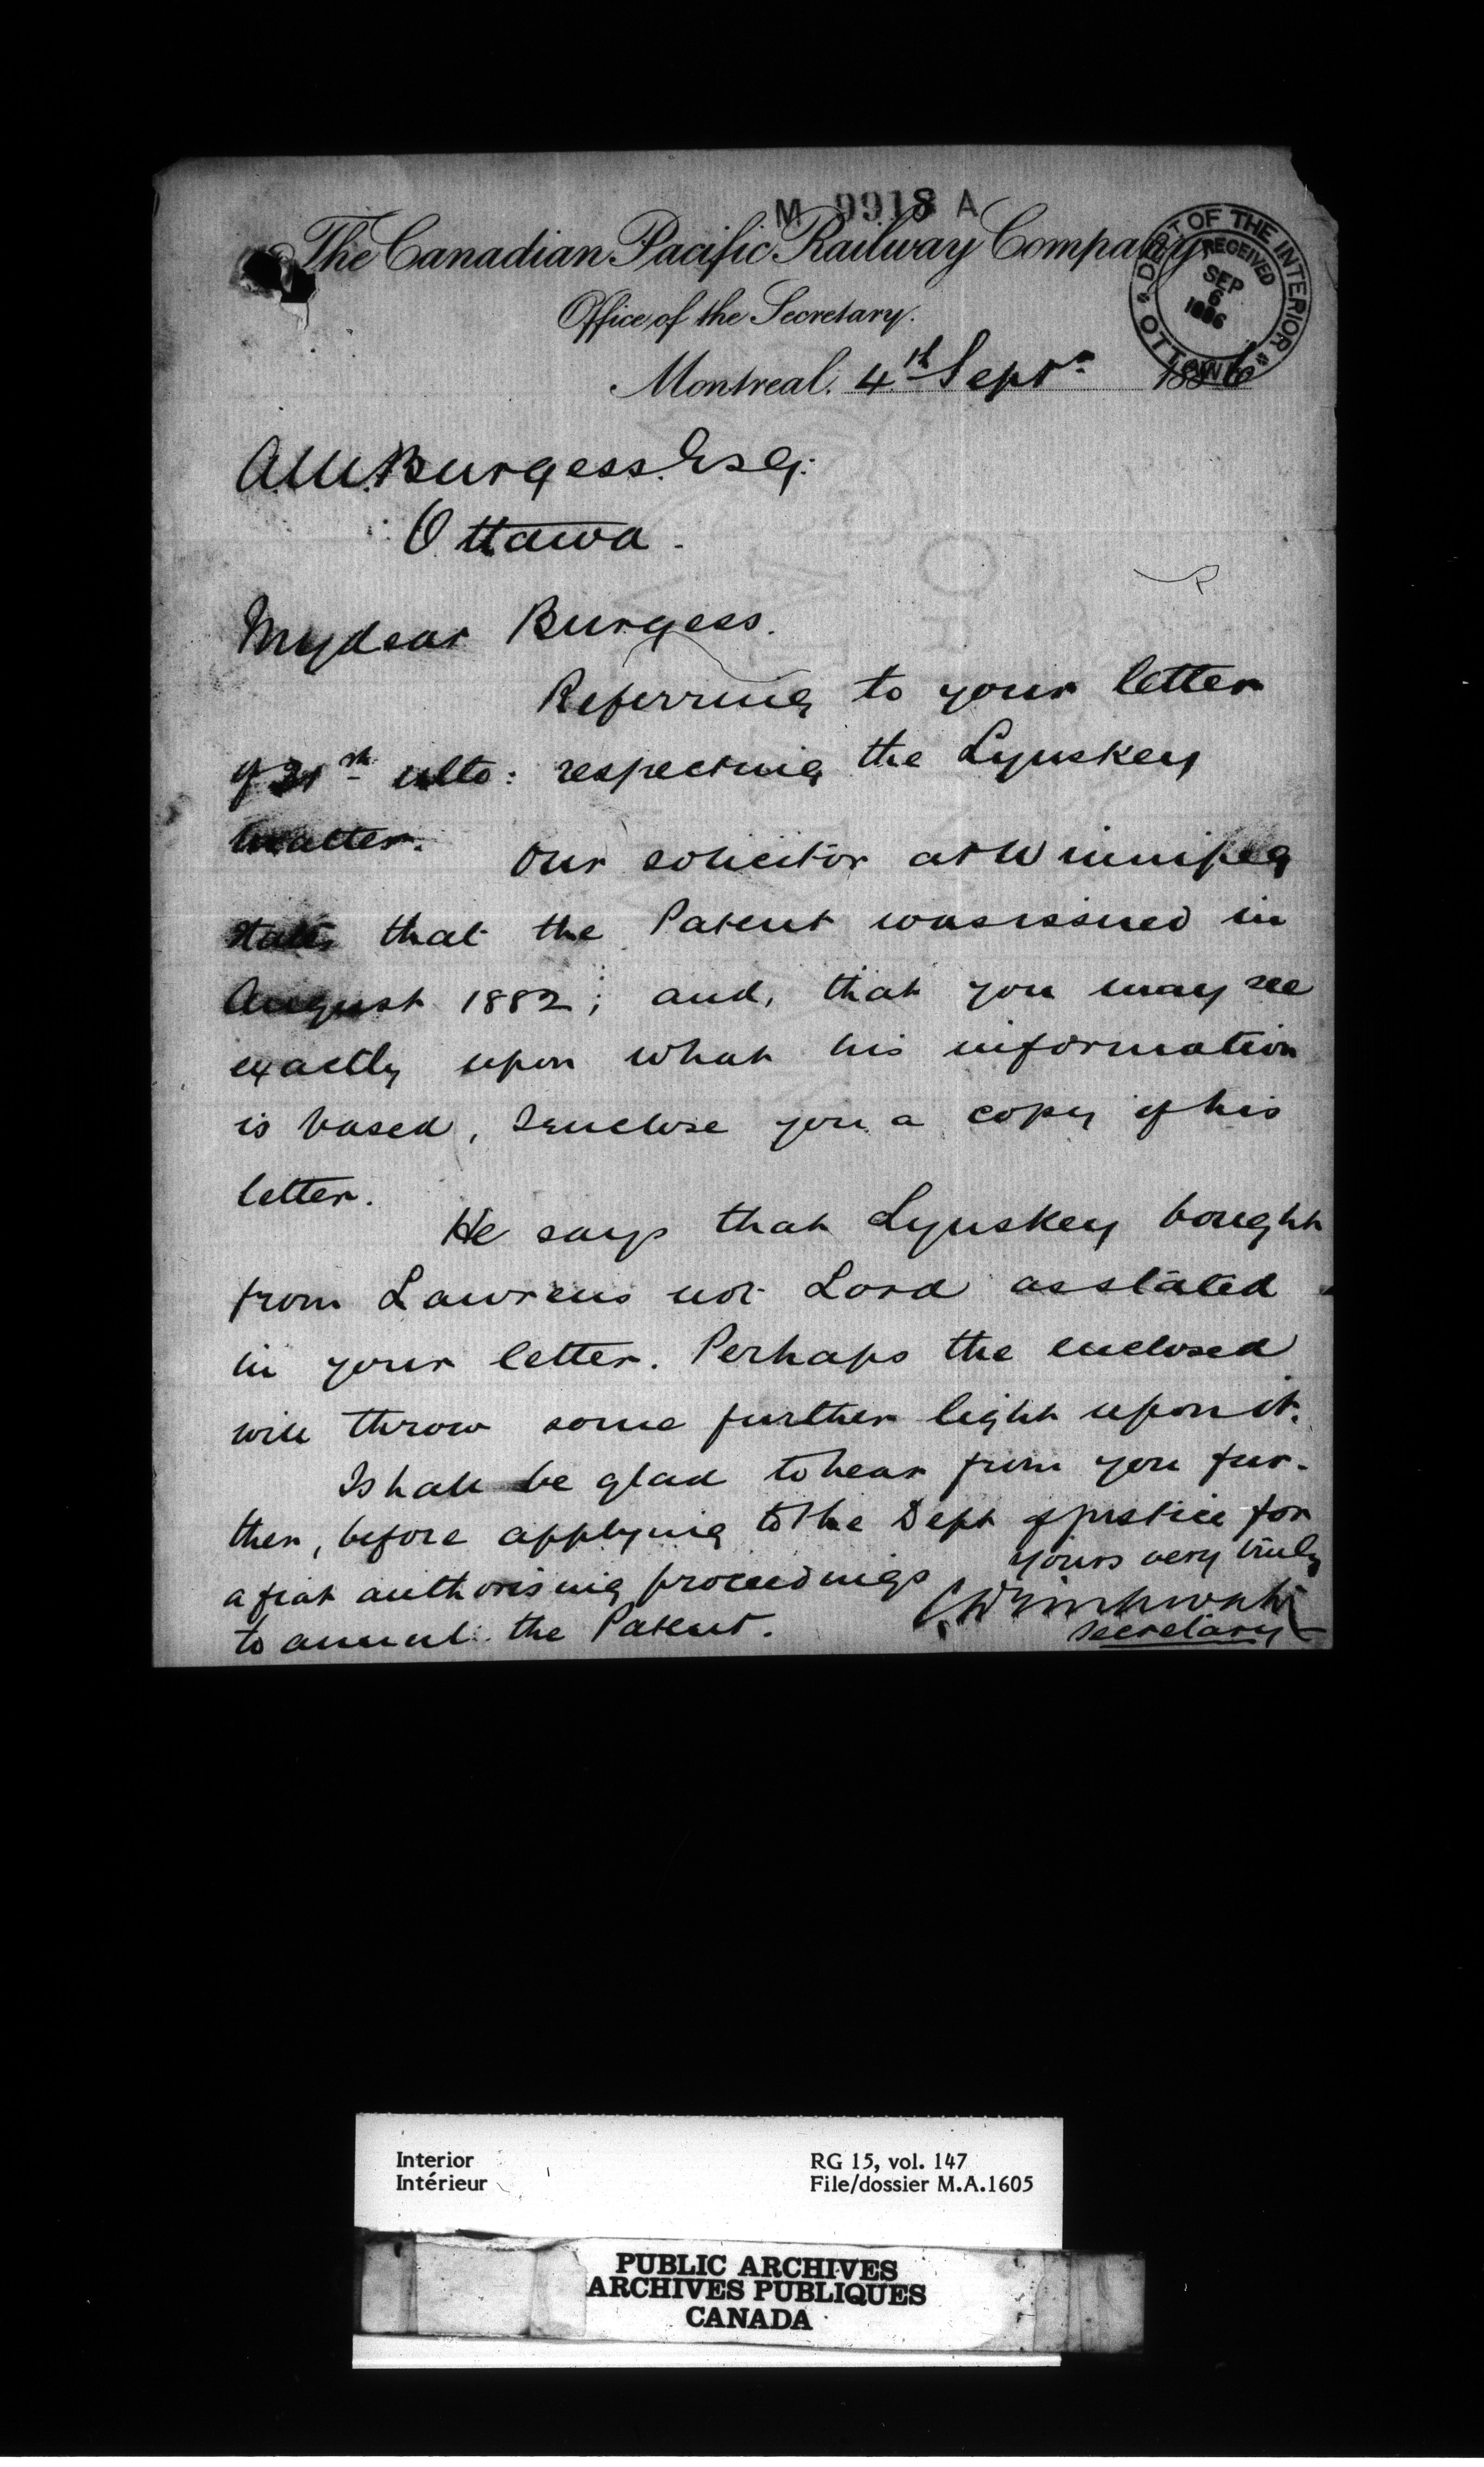 M 9918 A
The Canadian Pacific Railway Company
DEPT OF THE INTERIOR
RECEIVED
SEP
6
1886
OTTAWA
Office of the Secretary.
Montreal. 4th Septr. 1886
A.M. Burgess. Esq.
Ottawa.
My dear Burgess.
Referring to your letter
of 31st ulto: respecting the Lynskey
matter. Our solicitor at Winnipeg
states that the Patent was issued in
August 1882; and, that you may see
exactly upon what his information
is based, I enclose you a copy of his
letter.
He says that Lynskey bought
from Lawrens not Lord as stated
in your letter. Perhaps the enclosed
will throw some further light upon it.
I shall be glad to hear from you fur-
ther, before applying to the Dept of justice for
a fiat authorising proceedings
to annul the Patent.
yours very truly
C Drinkwater
secretary
Interior
Intérieur
RG 15, vol. 147
File/dossier M.A.1605
PUBLIC ARCHIVES
ARCHIVES PUBLIQUES
CANADA